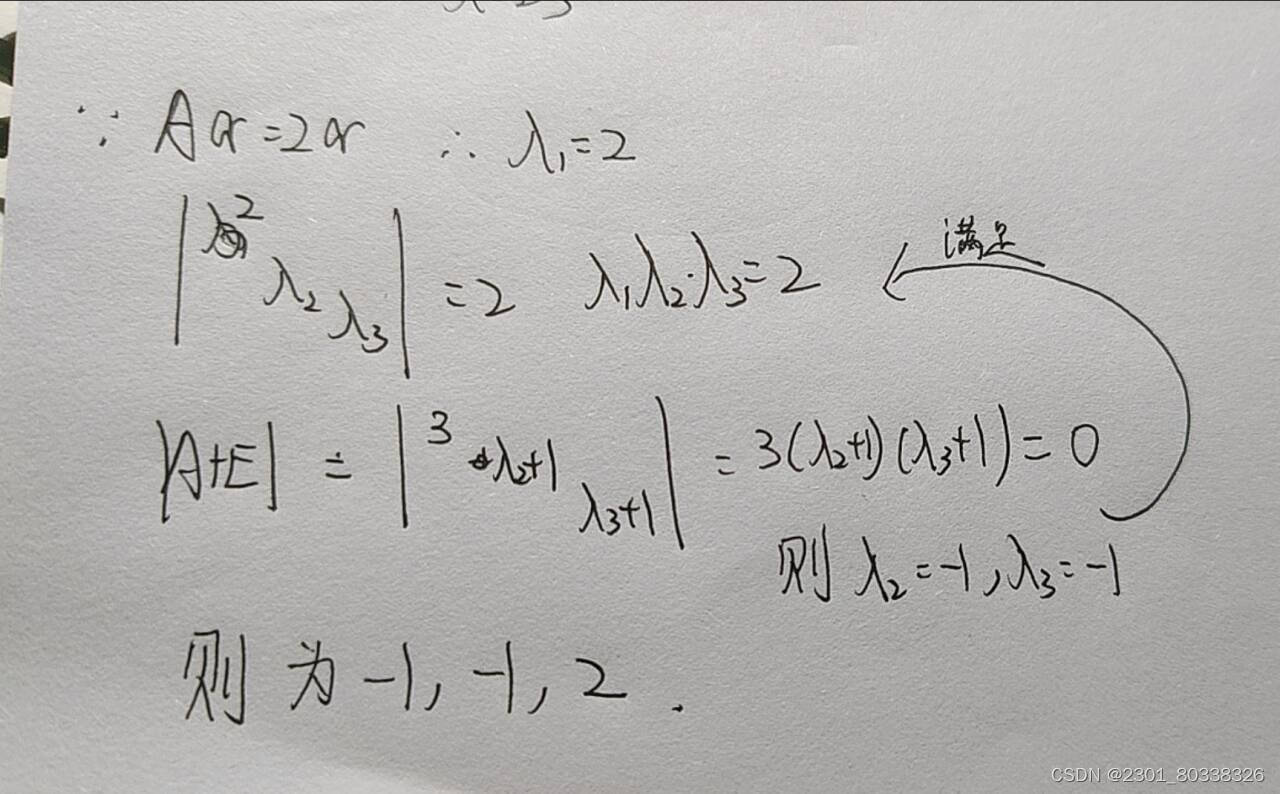 ∵ Aα=2α ∴ λ₁=2
|2 λ₂ λ₃| =2 λ₁λ₂·λ₃=2 满足
|A+E| = |3 λ₂+1 λ₃+1| = 3(λ₂+1)(λ₃+1)=0
则 λ₂=-1, λ₃=-1
则为 -1, -1, 2.
CSDN @2301_80338326